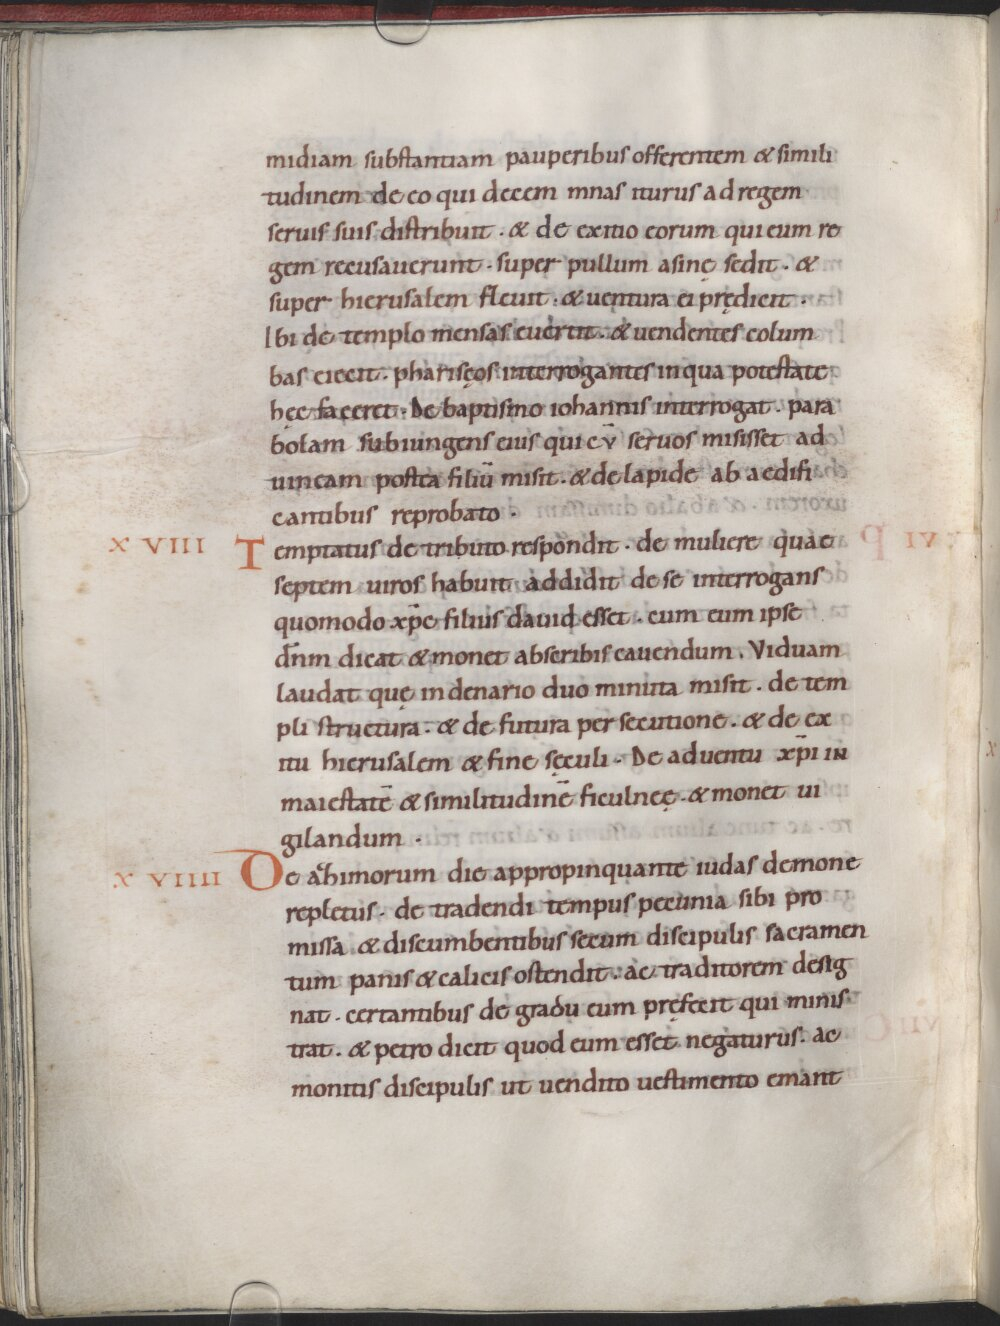 midiam substantiam pauperibus offerentem & simili
tudinem de eo qui decem mnas iturus ad regem
seruis suis distribuit · & de exitio eorum qui eum re
gem recusauerunt · super pullum asinę sedit · &
super hierusalem fleuit · & uentura ei prędicit ·
Ibi de templo mensas euertit · & uendentes colum
bas eiecit · phariseos interrogantes in qua potestate
hęc faceret · De baptismo iohannis interrogat · para
bolam subiungens eius qui cv̄ seruos misisset ad
uineam postea filiū misit · & de lapide ab aedifi
cantibus reprobato ·
X VIII Temptatus de tributo respondit · de muliere quae
septem uiros habuit addidit de se interrogans
quomodo xp̄c filius dauid esset · cum eum ipse
dn̄m dicat & monet abscribis cauendum · Viduam
laudat quę in denario duo minuta misit · de tem
pli structura · & de futura persecutione · & de ex
itu hierusalem & fine sęculi · De aduentu xp̄i in
maiestatē & similitudinē ficulneę · & monet ui
gilandum ·
X VIIII De azhimorum die appropinquante iudas demone
repletus · de tradendi tempus pecunia sibi pro
missa & discumbentibus secum discipulis sacramen
tum panis & calicis ostendit · ac traditorem desig
nat · certantibus de gradu eum pręfecit qui minis
trat · & petro dicit quod eum esset negaturus · ac
monitis discipulis ut uendito uestimento emant